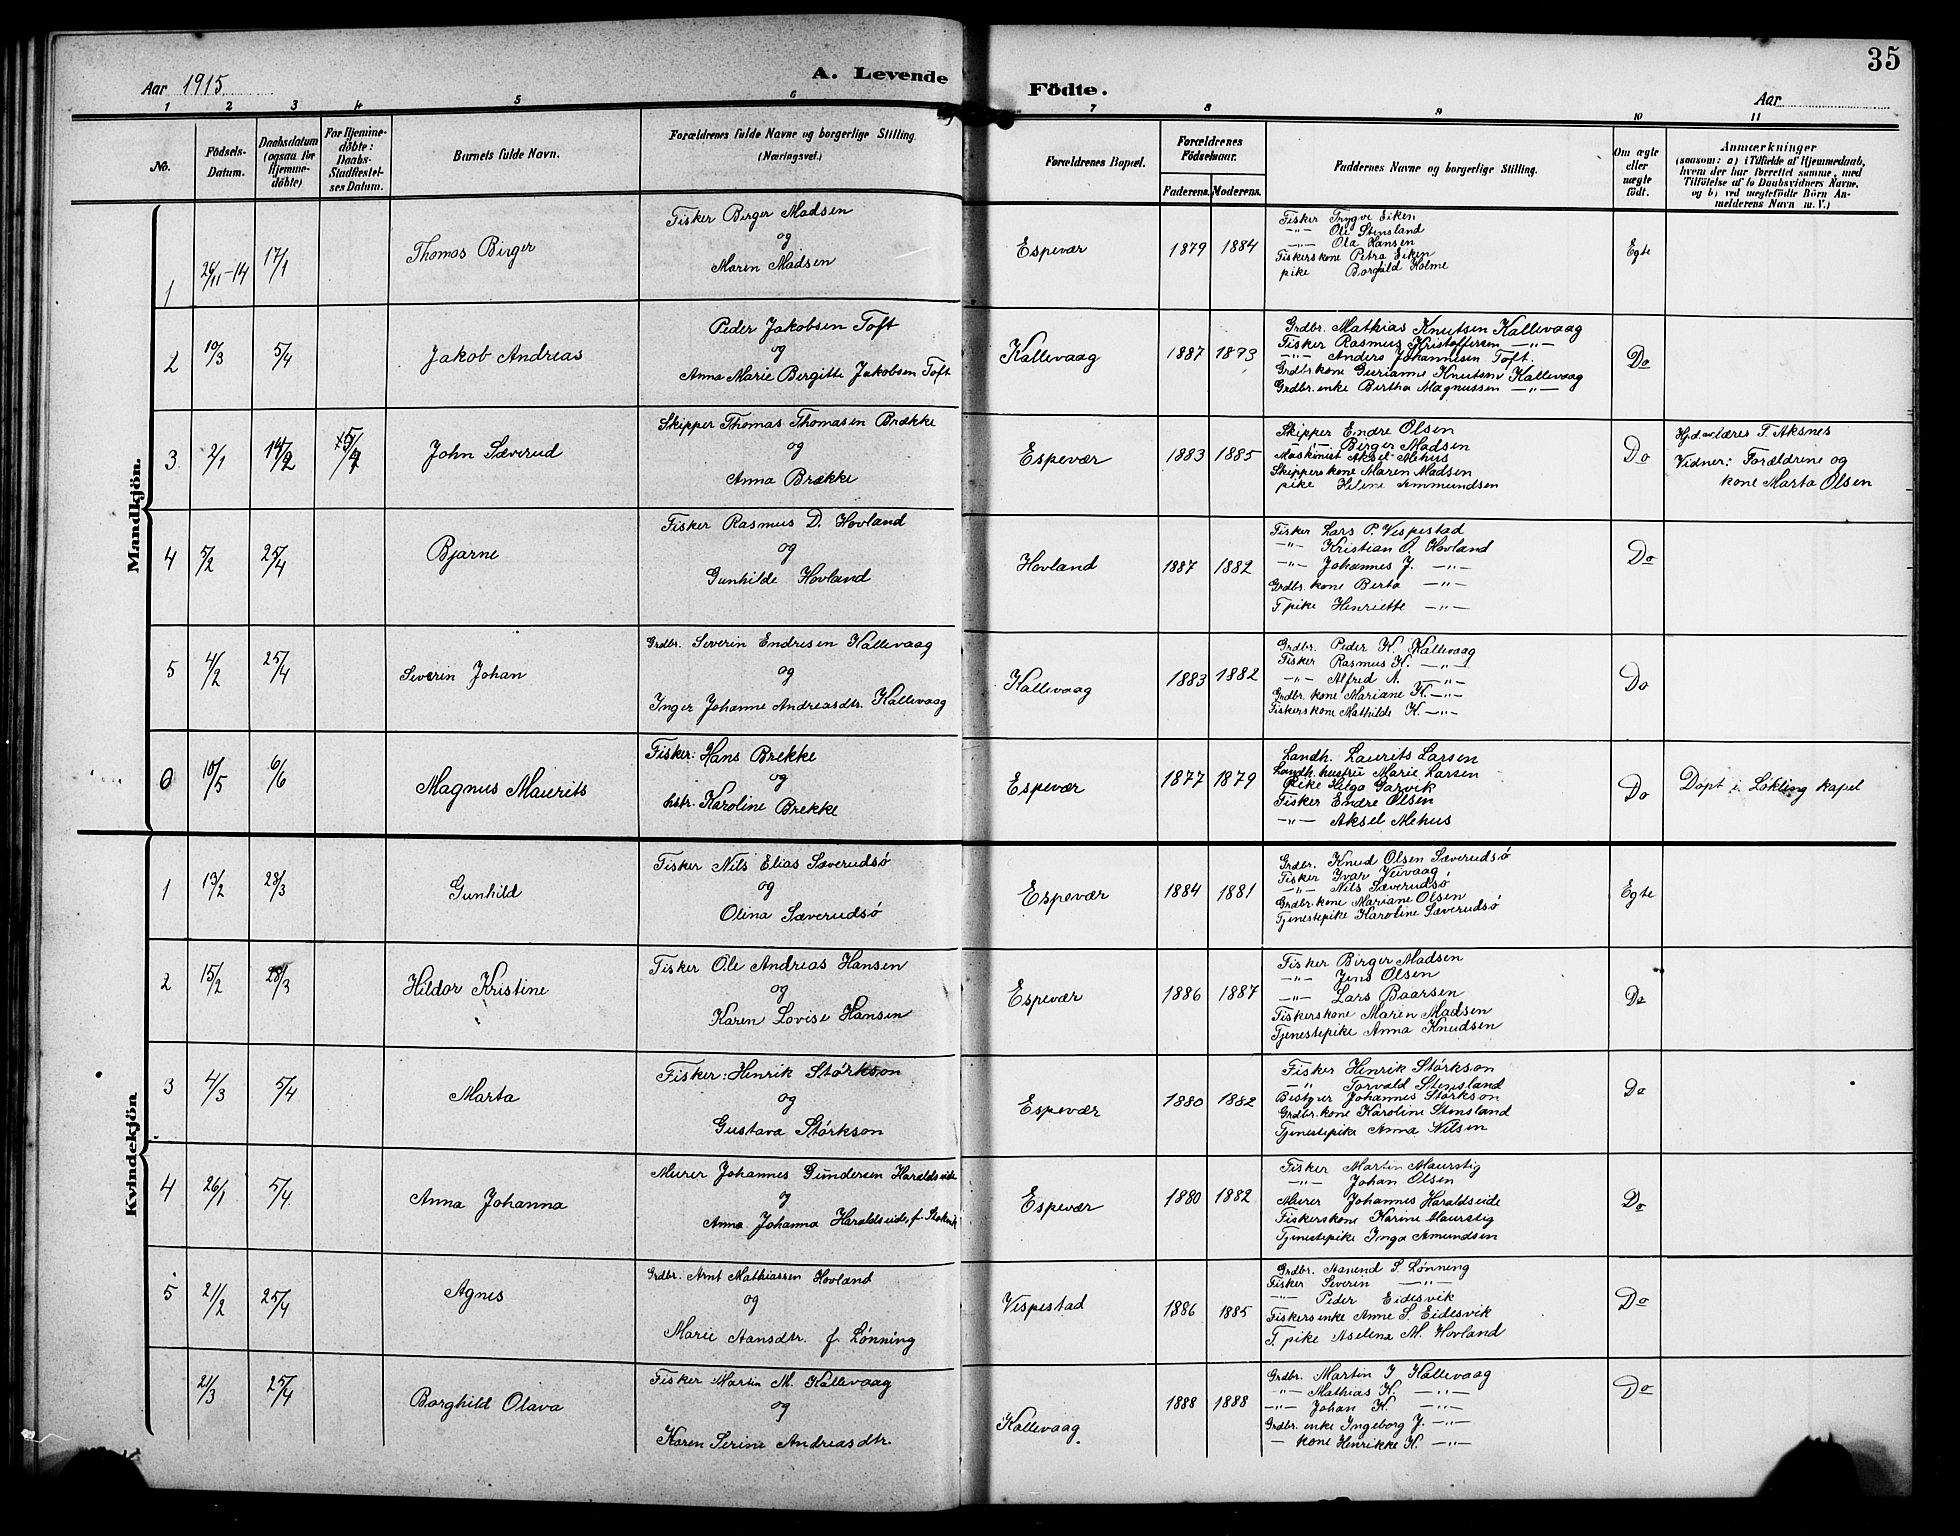 35
A. Levende Födte.
Aar 1915
Aar
1 2 3 4 5 6 7 8 9 10 11
No.
Födsels-Datum.
Daabsdatum (ogsaa for Hjemmedöbte)
For Hjemmedöbte: Daabs-Stadfestelses Datum.
Barnets fulde Navn.
Forældrenes fulde Navne og borgerlige Stilling. (Næringsvei.)
Forældrenes Bopæl.
Forældrenes Födselsaar.
Faderens. Moderens.
Faddernes Navne og borgerlige Stilling.
Om ægte eller uægte födt.
Anmærkninger
(saasom: a) i Tilfælde af Hjemmedaab, hvem der har forrettet samme, med Tilföielse af to Daabsvidners Navne, og b) ved uægtefödte Börn Anmelderens Navn m. V.)
Mandkjön.
1 26/11-14 17/1 Thomas Birger
Fisker Birger Madsen
og
Maren Madsen
Espevær 1879 1884
Fisker Trygve Eiken
-"- Ole Stensland
-"- Ola Hansen
Fiskerskone Petra Eiken
pike Borghild Holme
Egte
2 10/3 5/4 Jakob Andreas
Peder Jakobsen Toft
og
Anna Marie Bergitte Jakobsen Toft
Kallevaag 1887 1893
Grdbr. Mathias Knutsen Kallevaag
Fisker Rasmus Kristoffersen -"-
-"- Anders Johannesen Toft.
Grdbr kone Gurianne Knutsen Kallevaag
Grdbr. enke Bertha Magnussen -"-
Do
3 2/1 14/2 +5/4 John Sæverud
Skipper Thomas Thomasen Brække
og
Anna Brække
Espevær 1883 1885
Skipper Endre Olsen
-"- Birger Madsen
Maskinist Aksel Mehus
Skipperskone Maren Madsen
pike Helene Ammundsen
Do
Hjd. av lærer T. Aksnes
Vidner: Forældrene og
kone Marta Olsen
4 5/2 25/4 Bjarne
Fisker Rasmus D. Hovland
og
Gunhilde Hovland
Hovland 1887 1882
Fisker Lars P. Vespestad
-"- Kristian O. Hovland
-"- Johannes J. -"-
Grdbr. kone Berta -"-
T pike Henriette -"-
Do
5 4/2 25/4 Severin Johan
Grdbr. Severin Endresen Kallevaag
og
Inger Johanne Andreasdtr. Kallevaag
Kallevaag 1883 1882
Grdbr. Peder K. Kallevaag
Fisker Rasmus K. -"-
-"- Alfred A. -"-
Grdbr. kone Mariane K. -"-
Fiskerskone Mathilde K. -"-
Do
6 10/5 6/6 Magnus Maurits
Fisker: Hans Brekke
og
hstr. Karoline Brekke
Espevær 1877 1879
Landh. Laurits Larsen
Landh. hustru Marie Larsen
Pike Helga Garvik
Fisker Endre Olsen
-"- Aksel Mehus
Do
Døpt i Lokling kapel
Kvindekjön
1 13/2 28/3 Gunhild
Fisker Nils Elias Sæverudsø
og
Olina Sæverudsø
Espevær 1884 1881
Grdbr. Knud Olsen Sæverudsø
Fisker Ivar Veivaag
-"- Nils Sæverudsø
Grdbr. kone Mariane Olsen
Tjenestepike Karoline Sæverudsø
Egte
2 15/2 28/3 Hildor Kristine
Fisker Ole Andreas Hansen
og
Karen Lovise Hansen
Espevær 1886 1887
Fisker Birger Madsen
-"- Jens Olsen
-"- Lars Baarsen
Fiskerskone Maren Madsen
Tjenestepike Anna Knudsen
Do
3 4/3 5/4 Marta
Fisker: Henrik Størkson
og
Gustava Størkson
Espevær 1880 1882
Fisker Henrik Størkson
-"- Torvald Stensland
Johannes Størkson
Grdbr. kone Karoline Stensland
Tjenestepike Anna Nilsen
Do
4 26/1 5/4. Anna Johanna
Murer Johannes Gundersen Haraldseide
og
Anna Johanna Haraldseide, f.
Espevær 1880 1882
Fisker Martin Maurstig
-"- Johan Olsen
Murer Johannes Haraldseide
Fiskerskone Karine Maurstig
Tjenestepike Inga Amundsen
Do
5 21/2 25/4 Agnes
Grdbr. Arnt Mathiassen Hovland
og
Marie Aansdtr. f. Lønning
Vespestad 1886 1885
Grdbr. Aanend S. Lønning
Fisker Severin -"-
-"- Peder Eidesvik
Fiskersenke Anne S. Eidesvik
T. pike Aselena M. Hovland
Do
21/3 25/4 Borghild Olava
Fisker Martin M. Kallevaag
og
Karen Serine Andreasdtr.
Kallevaag 1888 1888
Grdbr. Martin J Kallevaag
-"- Mathias K. -"-
-"- Johan K. -"-
Grdbr. enke Ingeborg J. -"-
- kone Henrikke K. -"-
Do